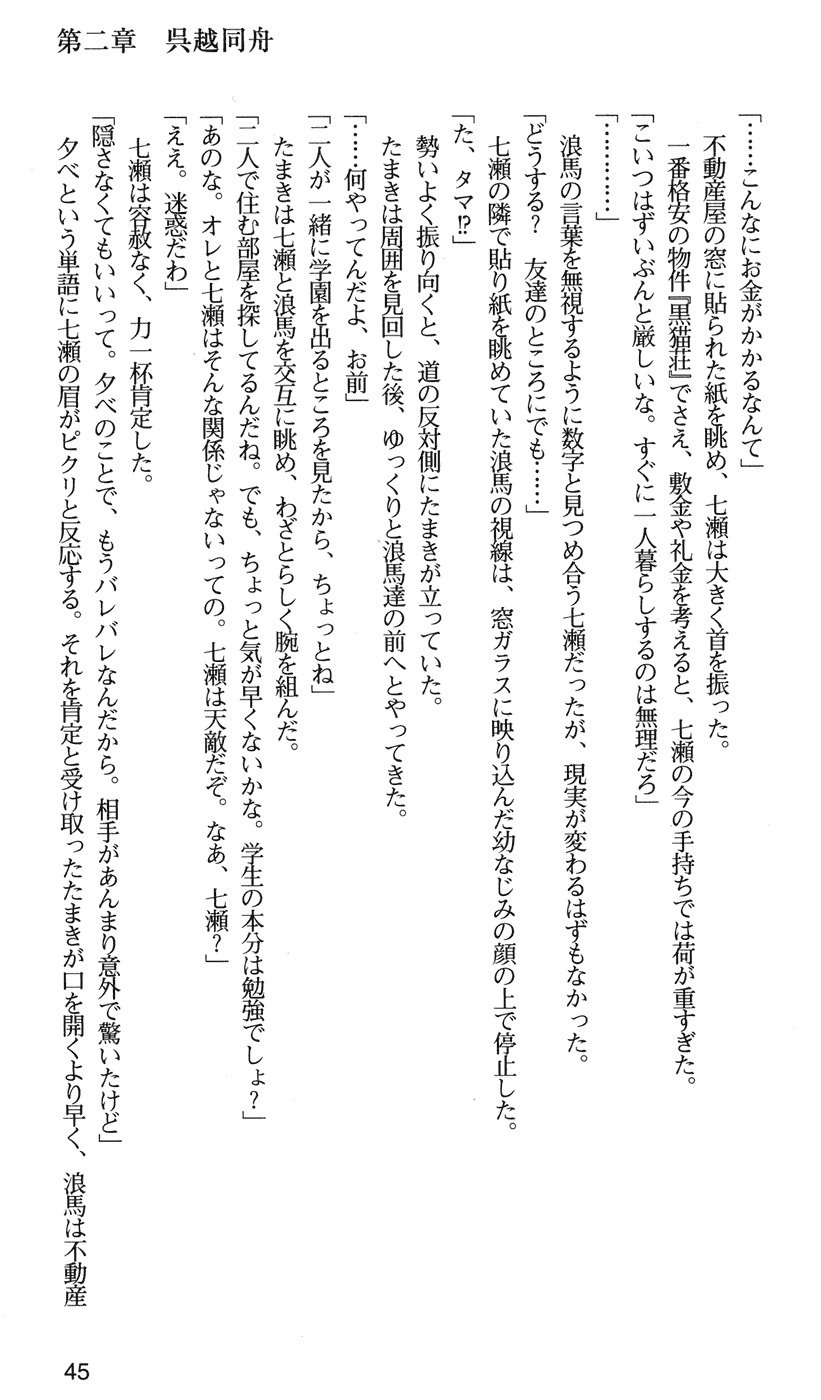 第二章　呉越同舟
「……こんなにお金がかかるなんて」
　不動産屋の窓に貼られた紙を眺め、七瀬は大きく首を振った。
　一番格安の物件『黒猫荘』でさえ、敷金や礼金を考えると、七瀬の今の手持ちでは荷が重すぎた。
「こいつはずいぶんと厳しいな。すぐに一人暮らしするのは無理だろ」
「…………」
　浪馬の言葉を無視するように数字と見つめ合う七瀬だったが、現実が変わるはずもなかった。
「どうする？　友達のところにでも……」
　七瀬の隣で貼り紙を眺めていた浪馬の視線は、窓ガラスに映り込んだ幼なじみの顔の上で停止した。
「た、タマ!?」
　勢いよく振り向くと、道の反対側にたまきが立っていた。
　たまきは周囲を見回した後、ゆっくりと浪馬達の前へとやってきた。
「……何やってんだよ、お前」
「二人が一緒に学園を出るところを見たから、ちょっとね」
　たまきは七瀬と浪馬を交互に眺め、わざとらしく腕を組んだ。
「二人で住む部屋を探してるんだね。でも、ちょっと気が早くないかな。学生の本分は勉強でしょ？」
「あのな。オレと七瀬はそんな関係じゃないっての。七瀬は天敵だぞ。なあ、七瀬？」
「ええ。迷惑だわ」
　七瀬は容赦なく、力一杯肯定した。
「隠さなくてもいいって。夕べのことで、もうバレバレなんだから。相手があんまり意外で驚いたけど」
　夕べという単語に七瀬の眉がピクリと反応する。それを肯定と受け取ったたまきが口を開くより早く、浪馬は不動産
45